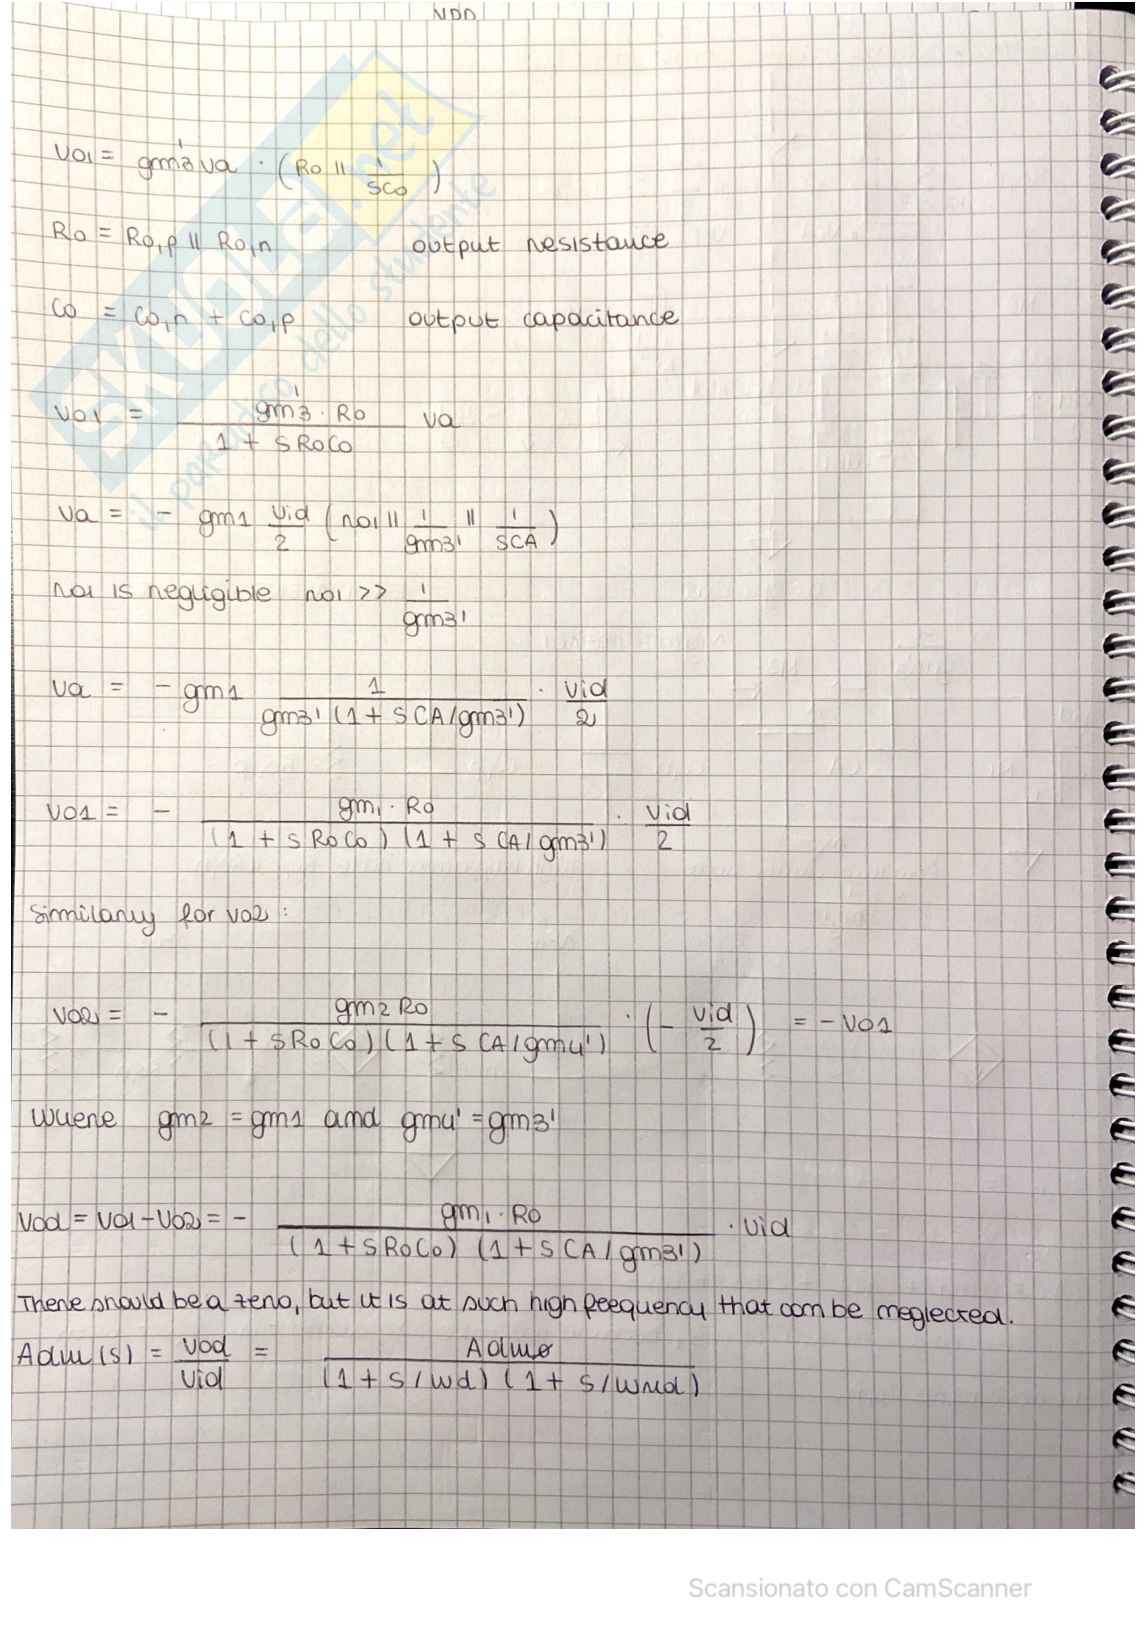 VDD
vo1 = gm3' va · (Ro || 1/sCo)
Ro = Ro,p || Ro,n output resistance
Co = Co,n + Co,p output capacitance
vo1 = gm3' · Ro / 1 + sRoCo va
va = - gm1 vid/2 (ro1 || 1/gm3' || 1/sCA)
ro1 is negligible ro1 >> 1/gm3'
va = - gm1 1/gm3' (1 + sCA/gm3') · vid/2
vo1 = - gm1 · Ro / (1 + sRoCo) (1 + sCA/gm3') · vid/2
Similarly for vo2 :
vo2 = - gm2 Ro / (1 + sRoCo) (1 + sCA/gm4') · (- vid/2) = - vo1
Where gm2 = gm1 and gm4' = gm3'
vod = vo1 - vo2 = - gm1 · Ro / (1 + sRoCo) (1 + sCA/gm3') · vid
There should be a zero, but it is at such high freequency that can be neglected.
Adm(s) = vod/vid = Admo / (1 + s/wd) (1 + s/wnd)
SKUOLA.net
il paradiso dello studente
Scansionato con CamScanner